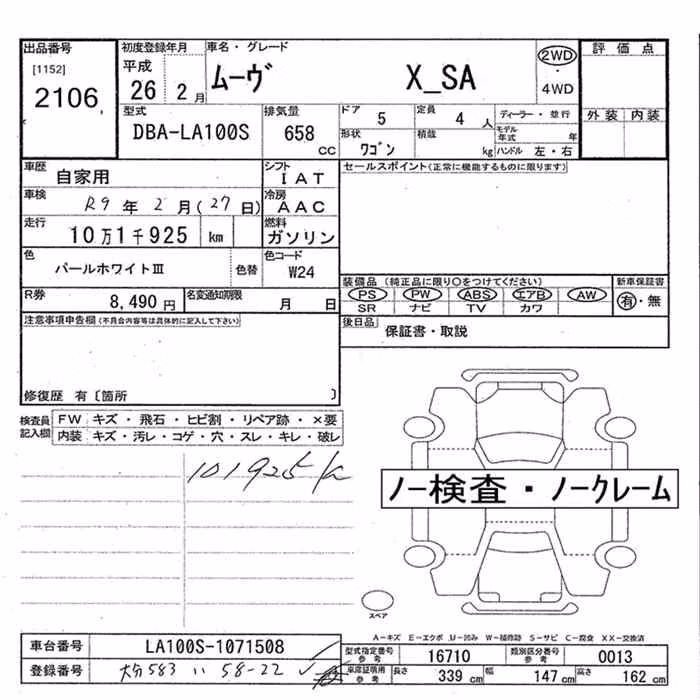 出品番号 初度登録年月 車名・グレード 評価点
[1152] 平成 ムーヴ X_SA 2WD
2106 26 2月 ・4WD
型式 排気量 ドア 定員 ディーラー・並行 外装 内装
DBA-LA100S 658 cc 5 4人 モデル年式 年
形状 積載
ワゴン kg ハンドル 左・右
車歴 自家用 シフト IAT セールスポイント(正常に機能するものに限ります)
車検 R9年2月(27日) 冷房 AAC
走行 10万1千925 km 燃料 ガソリン
色 パールホワイトⅢ 色替 色コード W24
装備品(純正品に限り〇をつけてください) 新車保証書
R券 8,490円 名変通知期限 月 日
PS PW ABS エアB AW 有・無
SR ナビ TV カワ
注意事項申告欄(不具合内容等は具体的に記入して下さい)
後日品 保証書・取説
修復歴 有〔箇所 〕
検査員記入欄 FW キズ・飛石・ヒビ割・リペア跡・×要
内装 キズ・汚レ・コゲ・穴・スレ・キレ・破レ
101925
ノー検査・ノークレーム
スペア
A-キズ E-エクボ U-凹み W-補修跡 S-サビ C-腐食 XX-交換済
車台番号 LA100S-1071508 型式指定番号参考 16710 類別区分番号参考 0013
登録番号 大分583 い 58-22 車庫証明用参考 長さ 339cm 幅 147cm 高さ 162cm